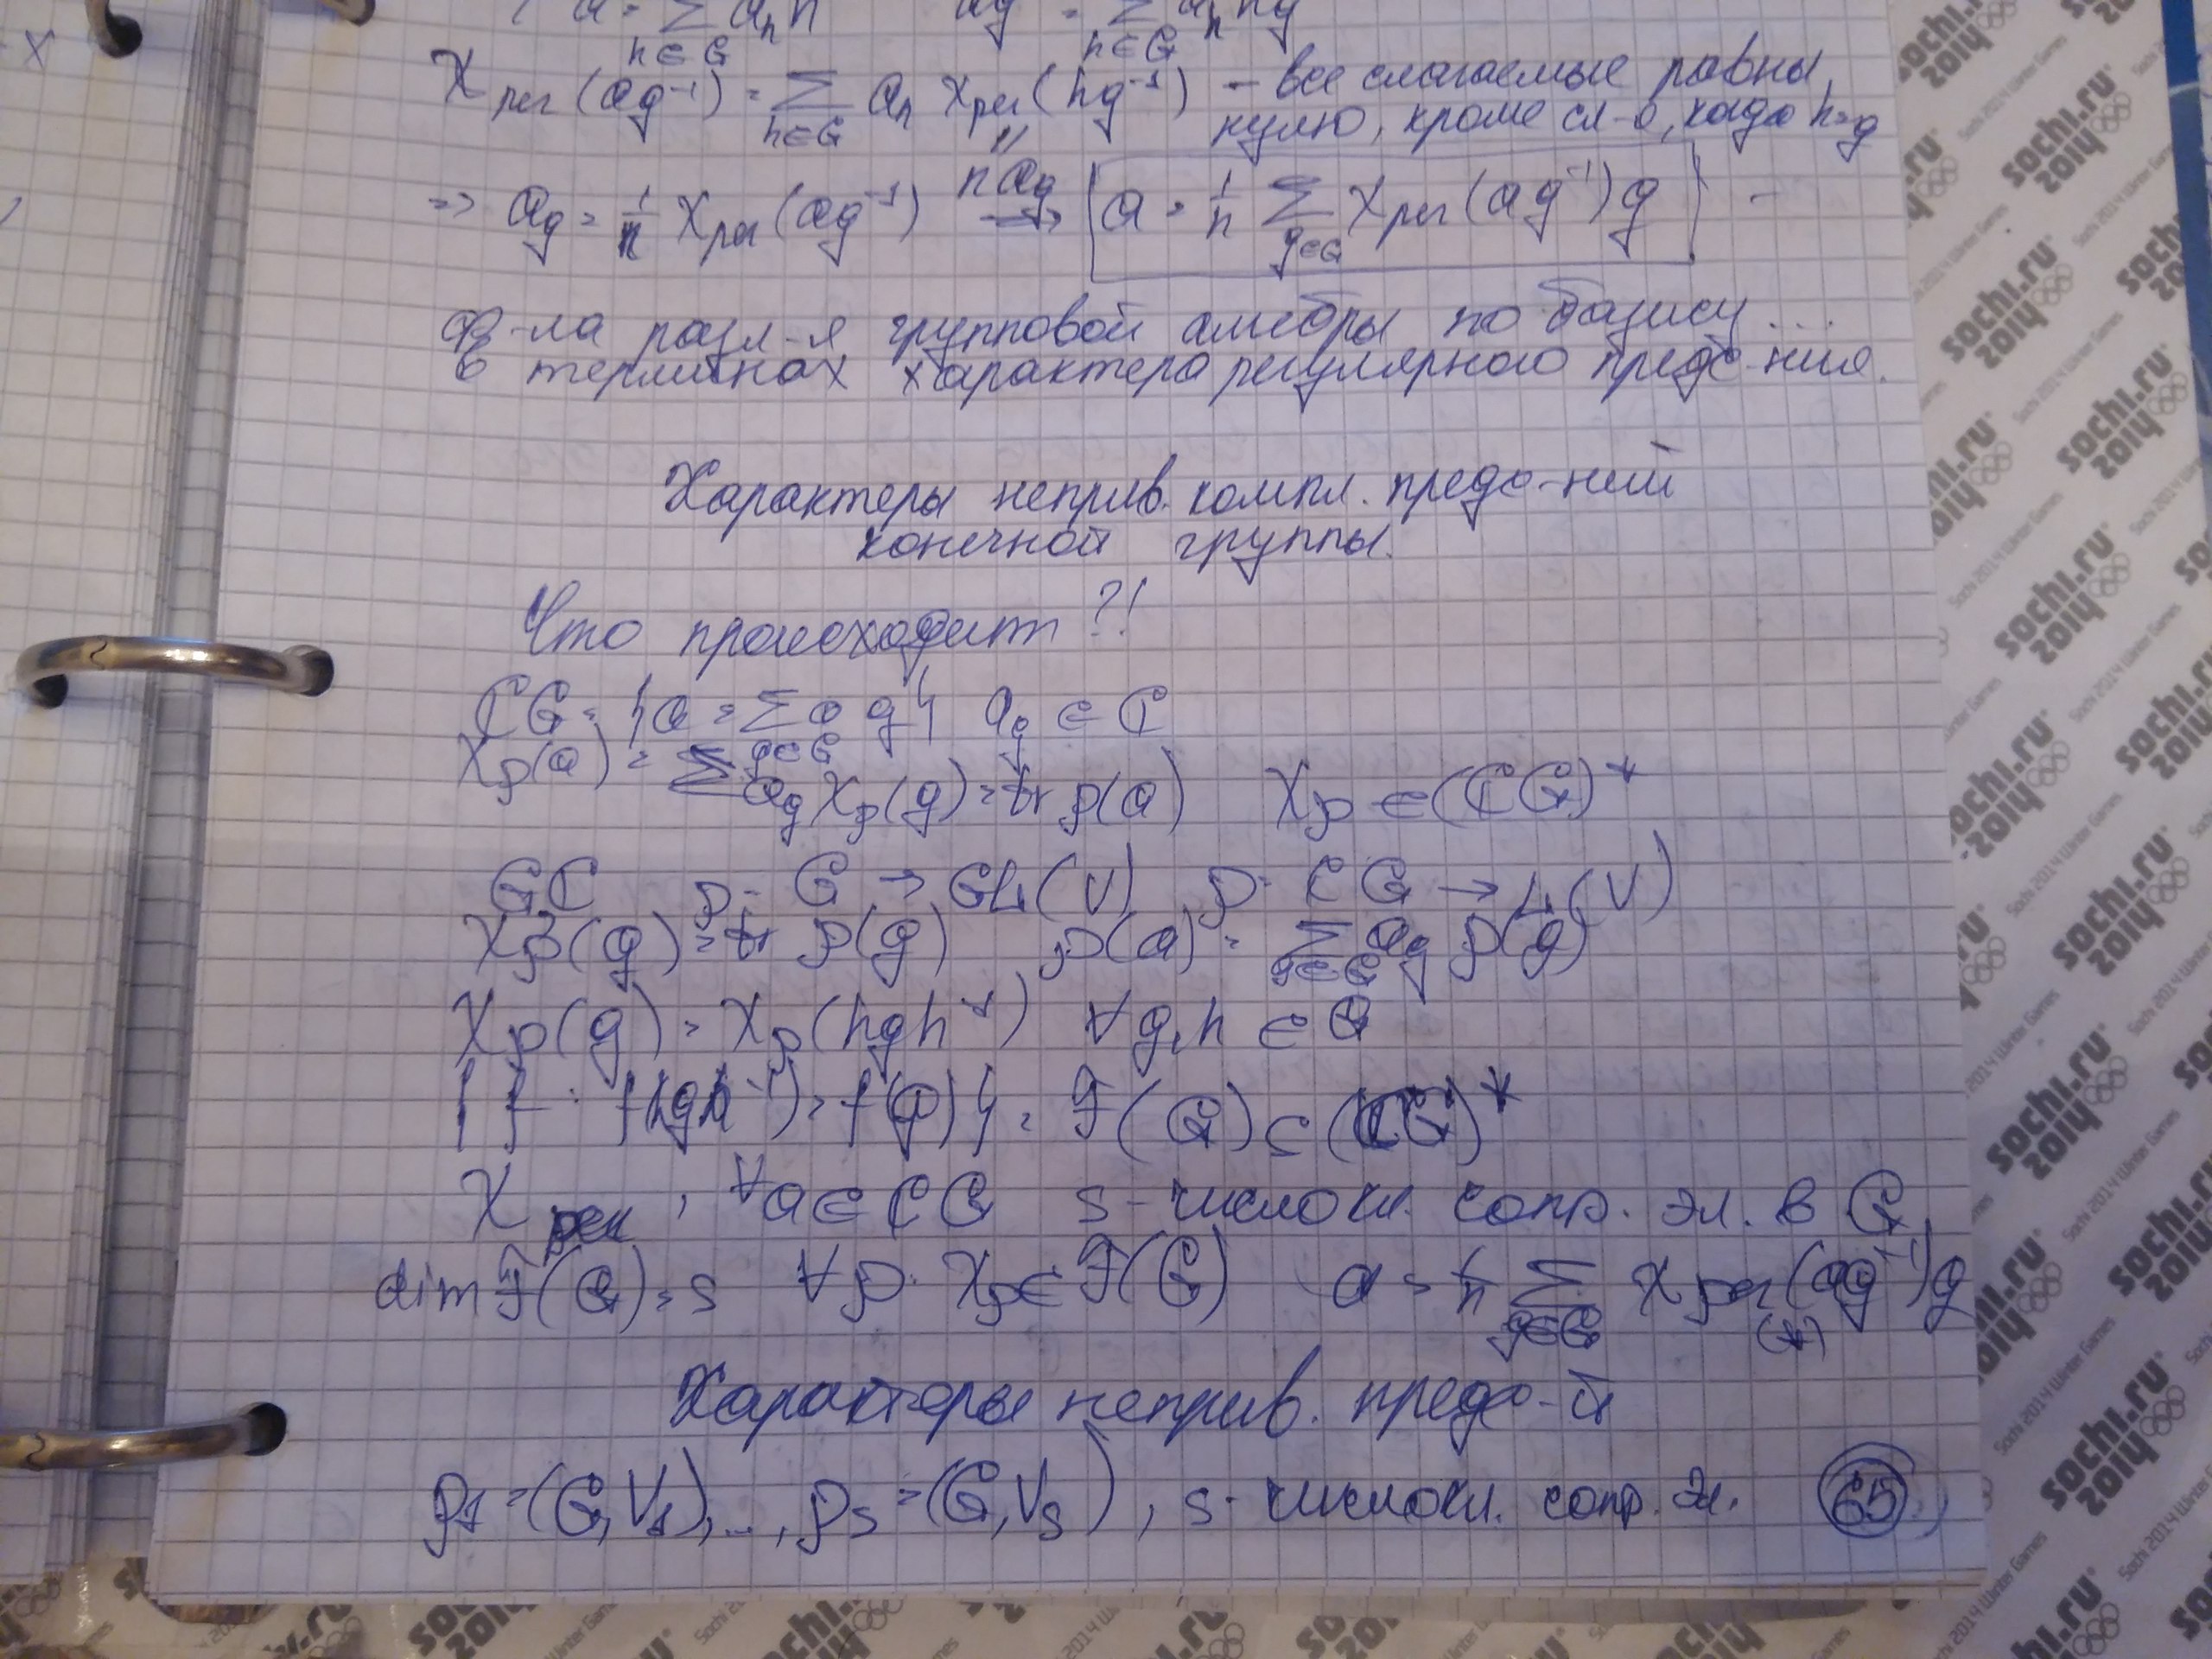 a = Σ aₕh   ag⁻¹ = Σ aₕhg⁻¹
h∈G   h∈G
χ_рег(ag⁻¹) = Σ_{h∈G} aₕ χ_рег(hg⁻¹) – все слагаемые равны
нулю, кроме сл-о, когда h=g
" n a_g
=> a_g = 1/n χ_рег(ag⁻¹) => a = 1/n Σ_{g∈G} χ_рег(ag⁻¹)g –
ф-ла разл-я групповой алгебры по базису...
в терминах характера регулярного предс-ния.
Характеры неприв. компл. предс-ний
конечной группы.
Что происходит?!
ℂG = {a = Σ_{g∈G} a g} a_g ∈ ℂ
χ_ρ(a) = Σ a_g χ_ρ(g) = tr ρ(a)   χ_ρ ∈ (ℂG)*
Gℂ   ρ: G → GL(V)   ρ: ℂG → L(V)
χ_ρ(g) = tr ρ(g)   ρ(a) = Σ_{g∈G} a_g ρ(g)
χ_ρ(g) = χ_ρ(hgh⁻¹) ∀g,h ∈ G
{f : f(hgh⁻¹) = f(g)} = F(G) ⊂ (ℂG)*
χ_рег, ∀a∈ℂG   s - число кл. сопр. эл. в G
dim F(G) = s   ∀ρ: χ_ρ∈F(G)   a = 1/n Σ_{g∈G} χ_рег(ag⁻¹)g
(*)
Характеры неприв. предс-й
ρ₁=(G,V₁),..., ρₛ=(G,Vₛ), s - число кл. сопр. эл.   65
sochi.ru
2014
Sochi 2014 Winter Games